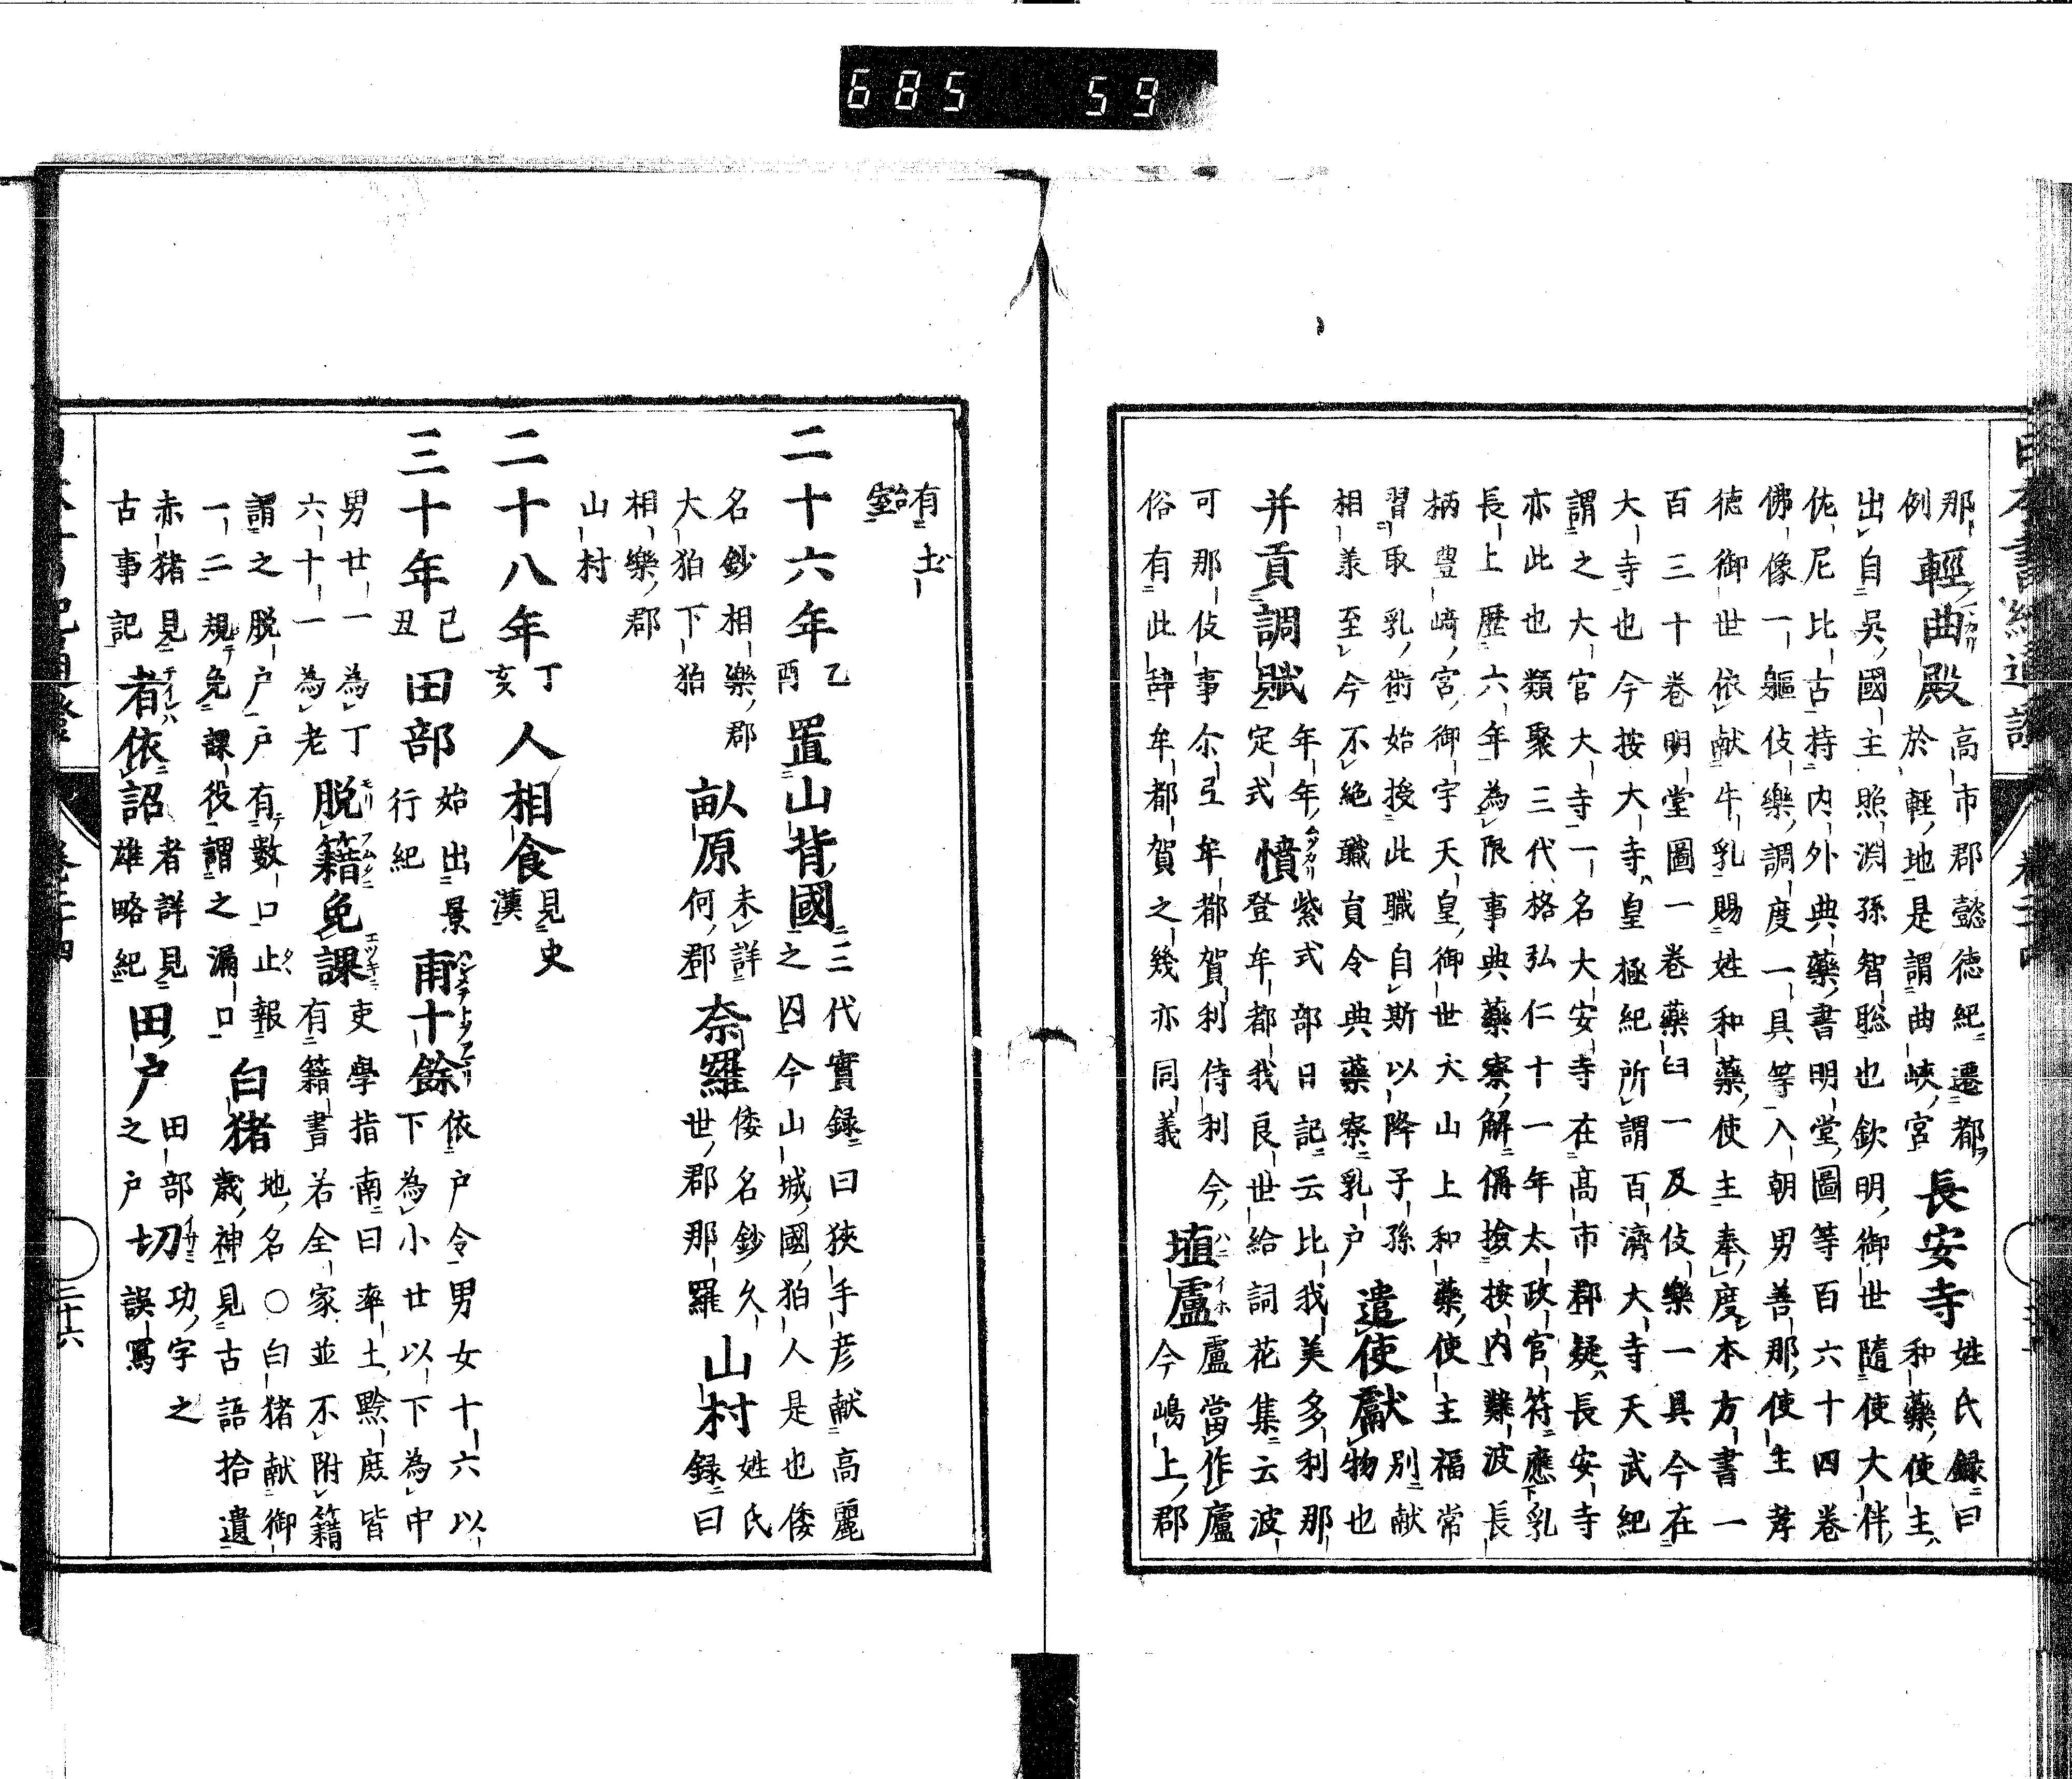 日本書紀通證 卷二十四
那
例
輕曲殿
高市郡懿徳紀遷都
於輕地是謂曲峽宮
長安寺
姓氏録曰
和藥使主
出自呉國主照淵孫智聡也欽明御世隨使大伴
佐尼比古持内外典藥書明堂圖等百六十四卷
佛像一軀伎樂調度一具等入朝男善那使主孝
徳御世依献牛乳賜姓和藥使主奉度本方書一
百三十卷明堂圖一卷藥臼一及伎樂一具今在
大寺也今按大寺皇極紀所謂百濟大寺天武紀
謂之大官大寺一名大安寺在髙市郡疑長安寺
亦此也類聚三代格弘仁十一年太政官符應乳
長上歴六年為限事典藥寮解偁撿按内難波長
柄豊﨑宮御宇天皇御世大山上和藥使主福常
習取乳術始授此職自斯以降子孫
相兼至今不絶職員令典藥寮乳戸
遣使獻
別献
物也
并貢調賦
年年
定式
憤
紫式部日記云比我美多利那
登牟都我良世給詞花集云波
可那伎事尒弖牟都賀利侍利今
俗有此辞牟都賀之幾亦同義
埴廬
廬當作廬
今嶋上郡
有土
室
二十六年
乙
酉
置山背國
三代實録曰狹手彦献高麗
之囚今山城國狛人是也倭
名鈔相樂郡
大狛下狛
畒原
未詳
何郡
奈羅
倭名鈔久
世郡那羅
山村
姓氏
録曰
相樂郡
山村
二十八年
丁
亥
人相食
見史
漢
三十年
己
丑
田部
始出景
行紀
甫十餘
依戸令男女十六以
下為小廿以下為中
男廿一為丁
六十一為老
脱籍免課
吏學指南曰率土黔庶皆
有籍書若全家並不附籍
謂之脱戸戸有數口止報
一二規免課役謂之漏口
白猪
地名○白猪献御
歳神見古語拾遺
赤猪見
古事記
者依詔
者詳見
雄略紀
田戸
田部
之戸
切
功字之
誤冩
三十六